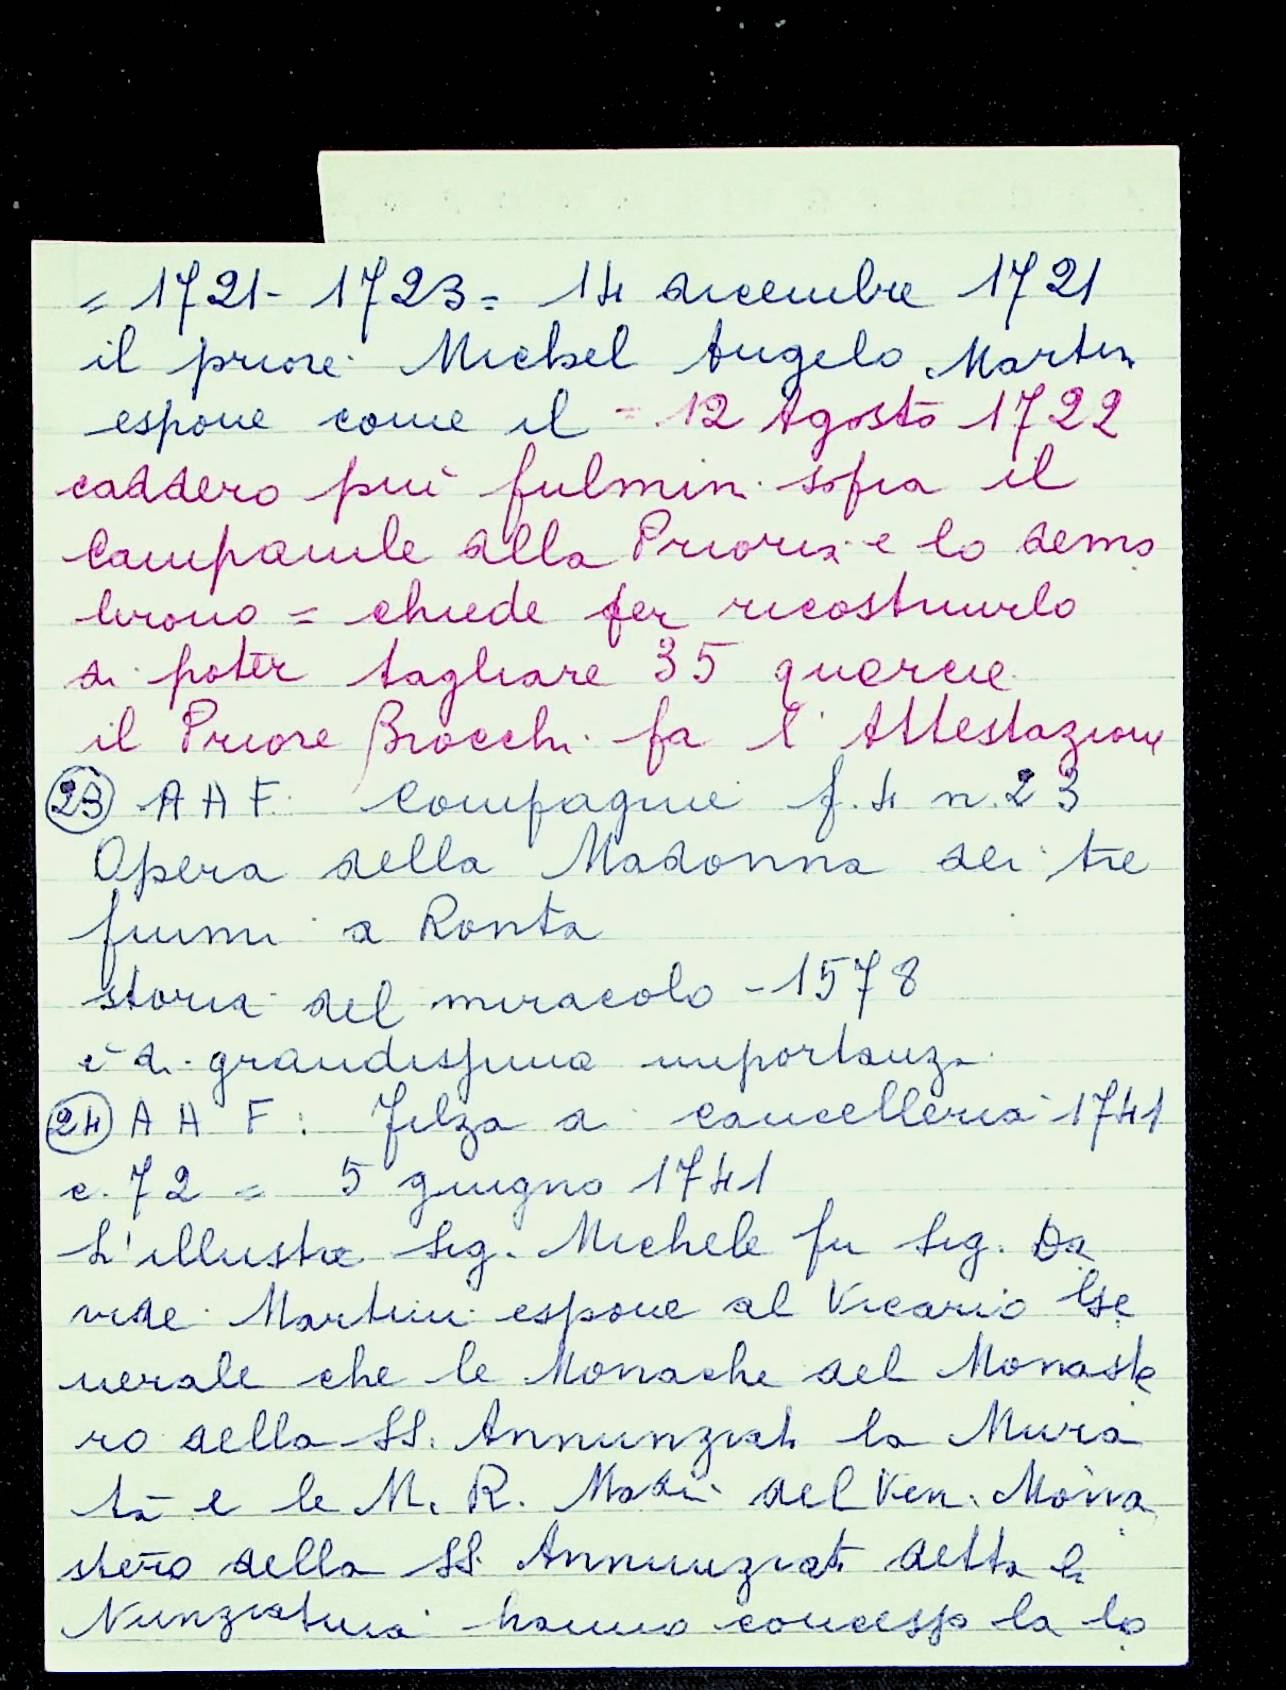 = 1721 - 1723 = 14 dicembre 1721
il priore Michel Angelo Martin
espone come il = 12 Agosto 1722
caddero più fulmini sopra il
Campanile alla Prioria e lo demo
lirono = chiede per ricostruirlo
di poter tagliare 35 quercie
il Priore Brocchi fa l'Attestazione
23 A A F: Compagnie f. 4 n. 23
Opera della Madonna dei tre
fiumi a Ronta
storia del miracolo - 1578
è di grandissima importanza
24 A A F: Filza di cancelleria 1741
c. 72 = 5 giugno 1741
L'illustre Sig. Michele fu Sig. Da
vide Martini espone al Vicario Ge
nerale che le Monache del Monaste
ro della SS. Annunziata la Mura
ta e le M. R. Madri del Ven. Mona
stero della SS. Annunziata detta la
Nunziatina hanno concesso la lo